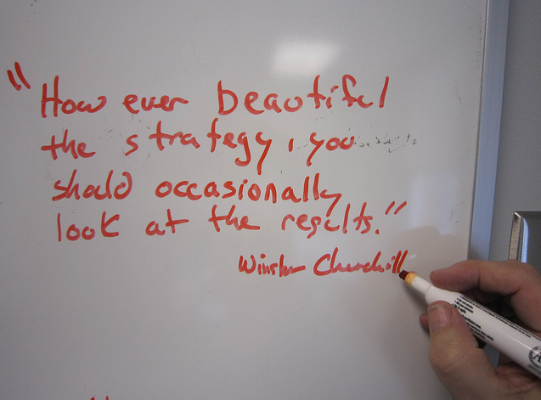 "How ever beautiful
the strategy, you
should occasionally
look at the results."
Winston Churchill